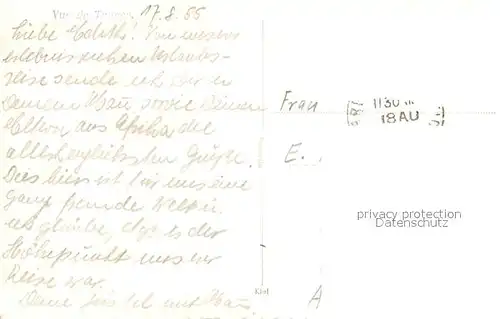 Vue de 17.8.55
Liebe Edith! Von unserer
erlebnisreichen Urlaubs-
reise sende ich Dir u
Deinem Mann sowie Deinen
Eltern aus Afrika die
allerherzlichsten Grüße.
Dies hier ist für uns eine
ganz fremde Welt u.
ich glaube, dass es der
Höhepunkt unserer
Reise war.
Frau
E.
A
1130
18 AU
privacy protection
Datenschutz